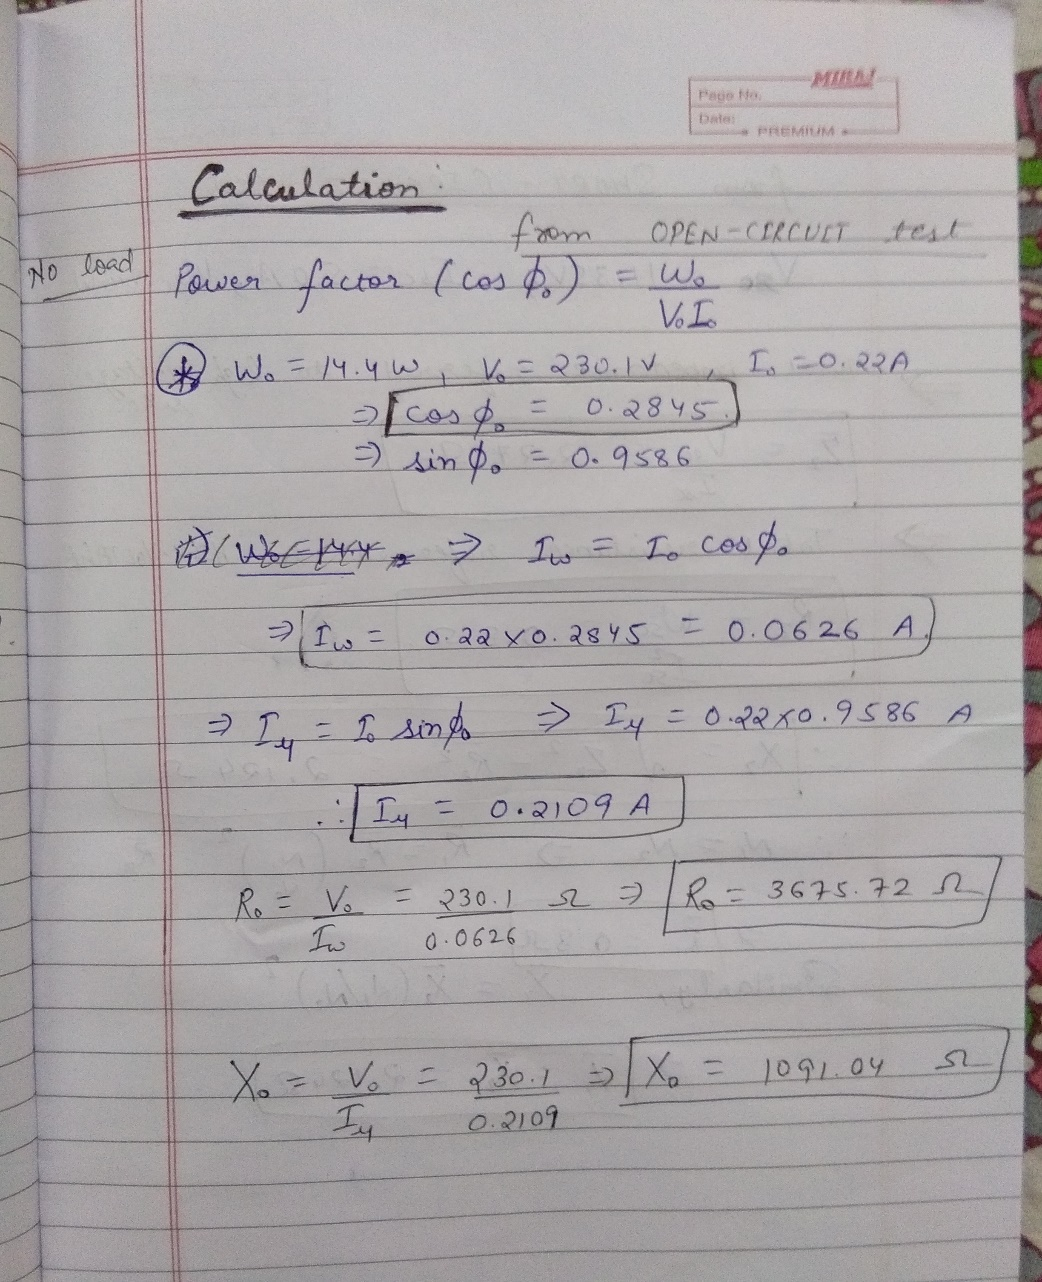 MIRAJ
Page No.
Date:
PREMIUM
Calculation :
from OPEN-CIRCUIT test
No load
Power factor (cos ϕ₀) = W₀ / V₀I₀
* W₀ = 14.4 W, V₀ = 230.1 V, I₀ = 0.22A
⇒ cos ϕ₀ = 0.2845
⇒ sin ϕ₀ = 0.9586
⇒ Iw = I₀ cos ϕ₀
⇒ Iw = 0.22 × 0.2845 = 0.0626 A
⇒ Iμ = I₀ sin ϕ₀ ⇒ Iμ = 0.22×0.9586 A
∴ Iμ = 0.2109 A
R₀ = V₀ / Iw = 230.1 / 0.0626 Ω ⇒ R₀ = 3675.72 Ω
X₀ = V₀ / Iμ = 230.1 / 0.2109 ⇒ X₀ = 1091.04 Ω